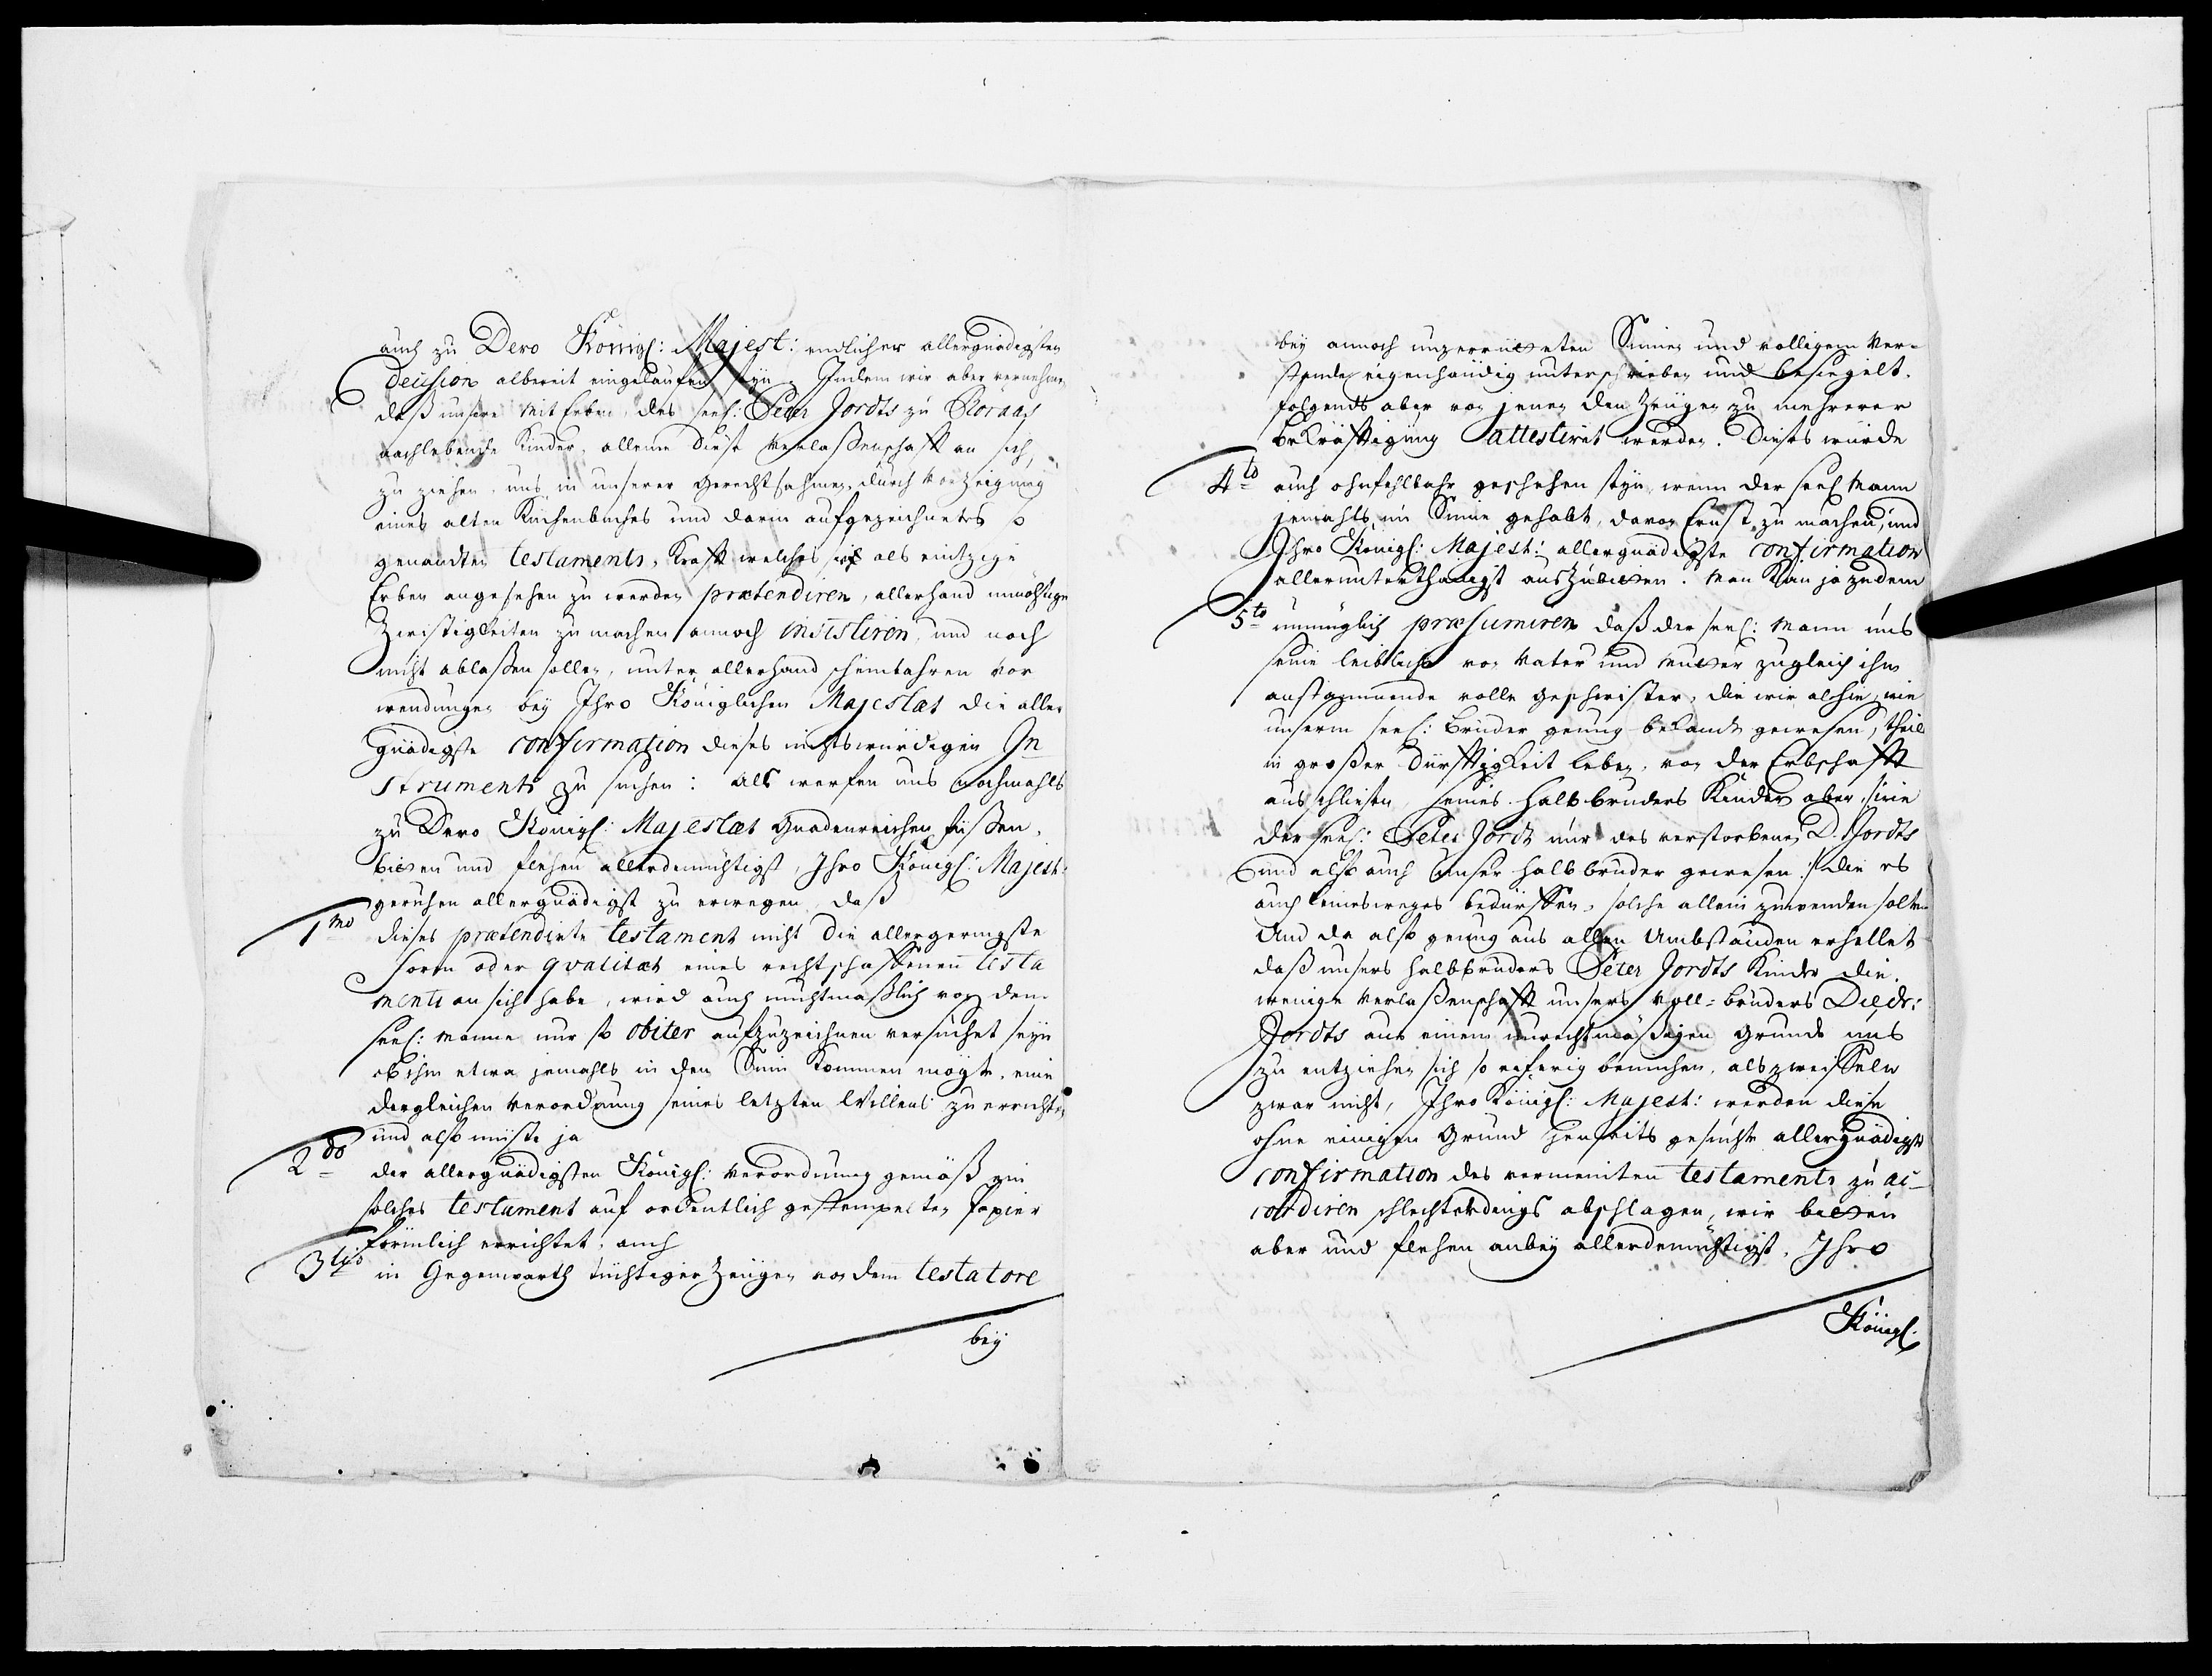 auch zu Dero Königl: Majest: endlicher allergnädigsten
decision albereit eingelaufen seyn. Indem wir aber vernehmen
daß unsere Mit Erben, des seel: Peter Jordts zu Koraas
nachlebende Kinder, alleine diese Verlaßenschafft an sich
zu ziehen, uns in unserer Gerechtsahmen, durch Vorzeigung
eines alten Küchenbuches und darin aufgezeichnetes so
genandten testaments, Krafft welches sie als eintzige
Erben angesehen zu werden prætendiren, allerhand unnöhtige
Zwistigkeiten zu machen annoch insistiren, und noch
nicht ablaßen sollen, unter allerhand scheinbahren Vor
wendungen bey Ihro Königlichen Majestæt die aller
gnädigste confirmation dieses nichtswürdigen In
struments zu suchen: als werfen uns nochmahls
zu Dero Königl: Majestæt Gnadenreichen füßen,
bitten und flehen allerdemühtigst, Ihro Königl: Majest:
geruhen allergnädigst zu erwegen, daß
1mo dieses prætendirte testament nicht die allergeringste
form oder qvalitæt eines rechtschaffenen testa
ments an sich habe, wird auch muhtmaßlich von dem
seel: Manne nur so obiter aufzuzeichnen versuchet seyn
ob ihm etwa jemahls in den Sinn kommen mögte, eine
dergleichen Verordnung seines letzten Willens zu errichten
und also müste ja
2do der allergnädigsten Königl: Verordnung gemäß ein
solches testament auf ordentlich gestempelten Papier
förmlich errichtet, auch
3tio in Gegenwarth tüchtiger Zeugen von dem testatore
bey
bey annoch unzerrütteten Sinnen und volligem Ver-
stande eigenhändig unterschrieben und besiegelt.
folgends aber von jenen den Zeugen zu mehrerer
bekräfftigung attestirt werden. Dieses würde
4to auch ohnfehlbahr geschehen seyn, wenn der seel Mann
jemahls im Sinne gehabt, davon Ernst zu machen, und
Ihro Königl: Majest: allergnädigste confirmation
allerunterthänigst auszubitten. Man kan ja zudem
5to unmüglich præsumiren daß der seel: Mann uns
seine leibliche von Vater und Mutter zugleich ihm
anstammende volle Geschwister, die wir alhie, wie
unserm seel: Bruder genug bekandt gewesen, theils
in großer Dürfftigkeit leben, von der Erbschafft
ausschließen, seines halb bruders Kinder aber, (wie
der seel: Peter Jordt nur des verstorbenen D. Jordts
und also auch unser halb bruder gewesen:/ die es
auch keinesweges bedürffen, solche allein zuwenden solte.
Und da also genug aus allen Umbständen erhellet
daß unsers halbbruders Peter Jordts Kinder die
wenige Verlaßenschafft unsers Voll-bruders Diedr:
Jordts aus einem unrechtmäßigen Grunde uns
zu entziehen sich so eiferig bemühen, als zweiffeln
zwar nicht, Ihro Königl: Majest: werden diese
ohne einigen Grund jenseits gesuchte allergnädigste
confirmation des vermeinten testaments zu ac-
cordiren schlechterdings abschlagen, wir bitten
aber und flehen anbey allerdemühtigst, Ihro
Königl: